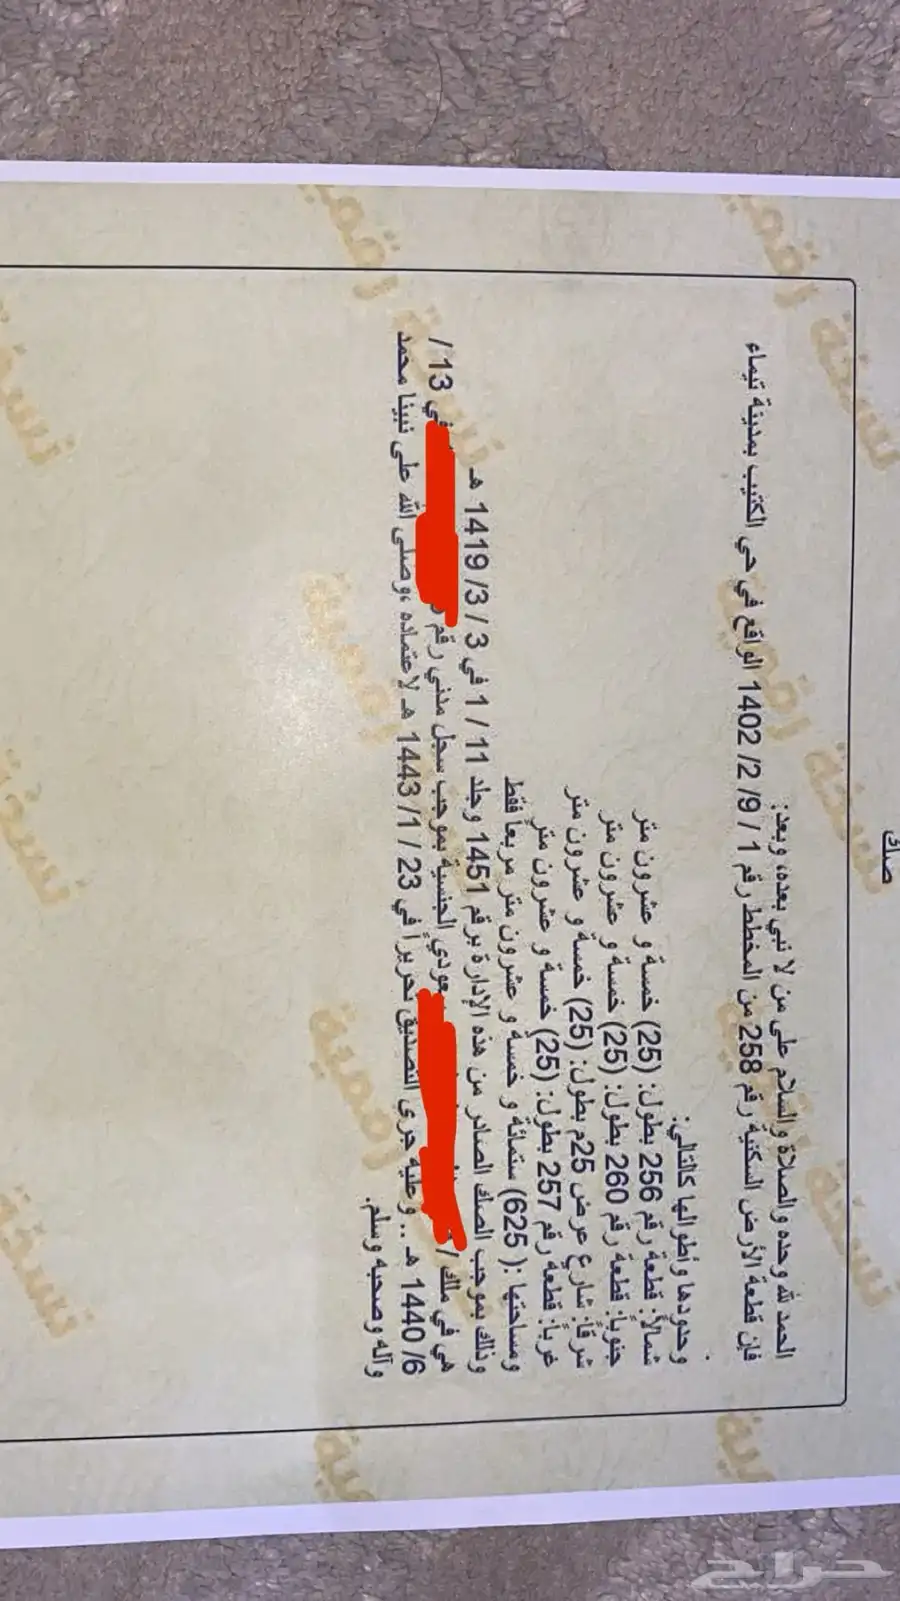 صك
الحمد لله وحده والصلاة والسلام على من لا نبي بعده، وبعد:
فإن قطعة الأرض السكنية رقم 258 من المخطط رقم 1 / 9/ 2/ 1402 الواقع في حي الكثيب بمدينة تيماء
وحدودها وأطوالها كالتالي:
شمالاً: قطعة رقم 256 بطول: (25) خمسة و عشرون متر
جنوباً: قطعة رقم 260 بطول: (25) خمسة و عشرون متر
شرقاً: شارع عرض 25م بطول: (25) خمسة و عشرون متر
غرباً: قطعة رقم 257 بطول: (25) خمسة و عشرون متر
ومساحتها :( 625) ستمائة و خمسة و عشرون متر مربعاً فقط
وذلك بموجب الصك الصادر من هذه الإدارة برقم 1451 وجلد 11 / 1 في 3 / 3/ 1419 هـ
هي في ملك / الجنسية بموجب سجل مدني رقم في 13 /
6/ 1440 هـ .. وعليه جرى التصديق تحريراً في 23 / 1/ 1443 هـ لاعتماده ،وصلى الله على نبينا محمد
وآله وصحبه وسلم.
نسخة رقمية
حراج